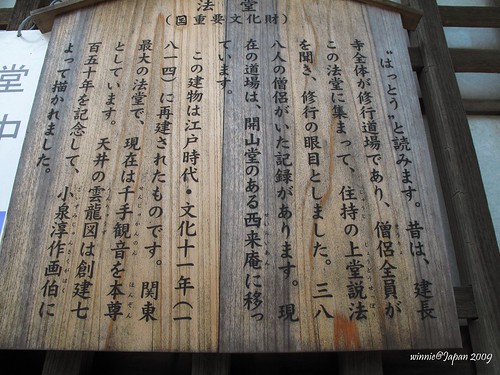 法堂
(国重要文化財)
"はっとう"と読みます。昔は、建長
寺全体が修行道場であり、僧侶全員が
この法堂に集まって、住持の上堂説法
を聞き、修行の眼目としました。三八
八人の僧侶がいた記録があります。現
在の道場は、開山堂のある西来庵に移っ
ています。
この建物は江戸時代・文化十一年(一
八一四)に再建されたものです。関東
最大の法堂で、現在は千手観音を本尊
としています。天井の雲龍図は創建七
百五十年を記念して、小泉淳作画伯に
よって描かれました。
堂
中
winnie@Japan 2009